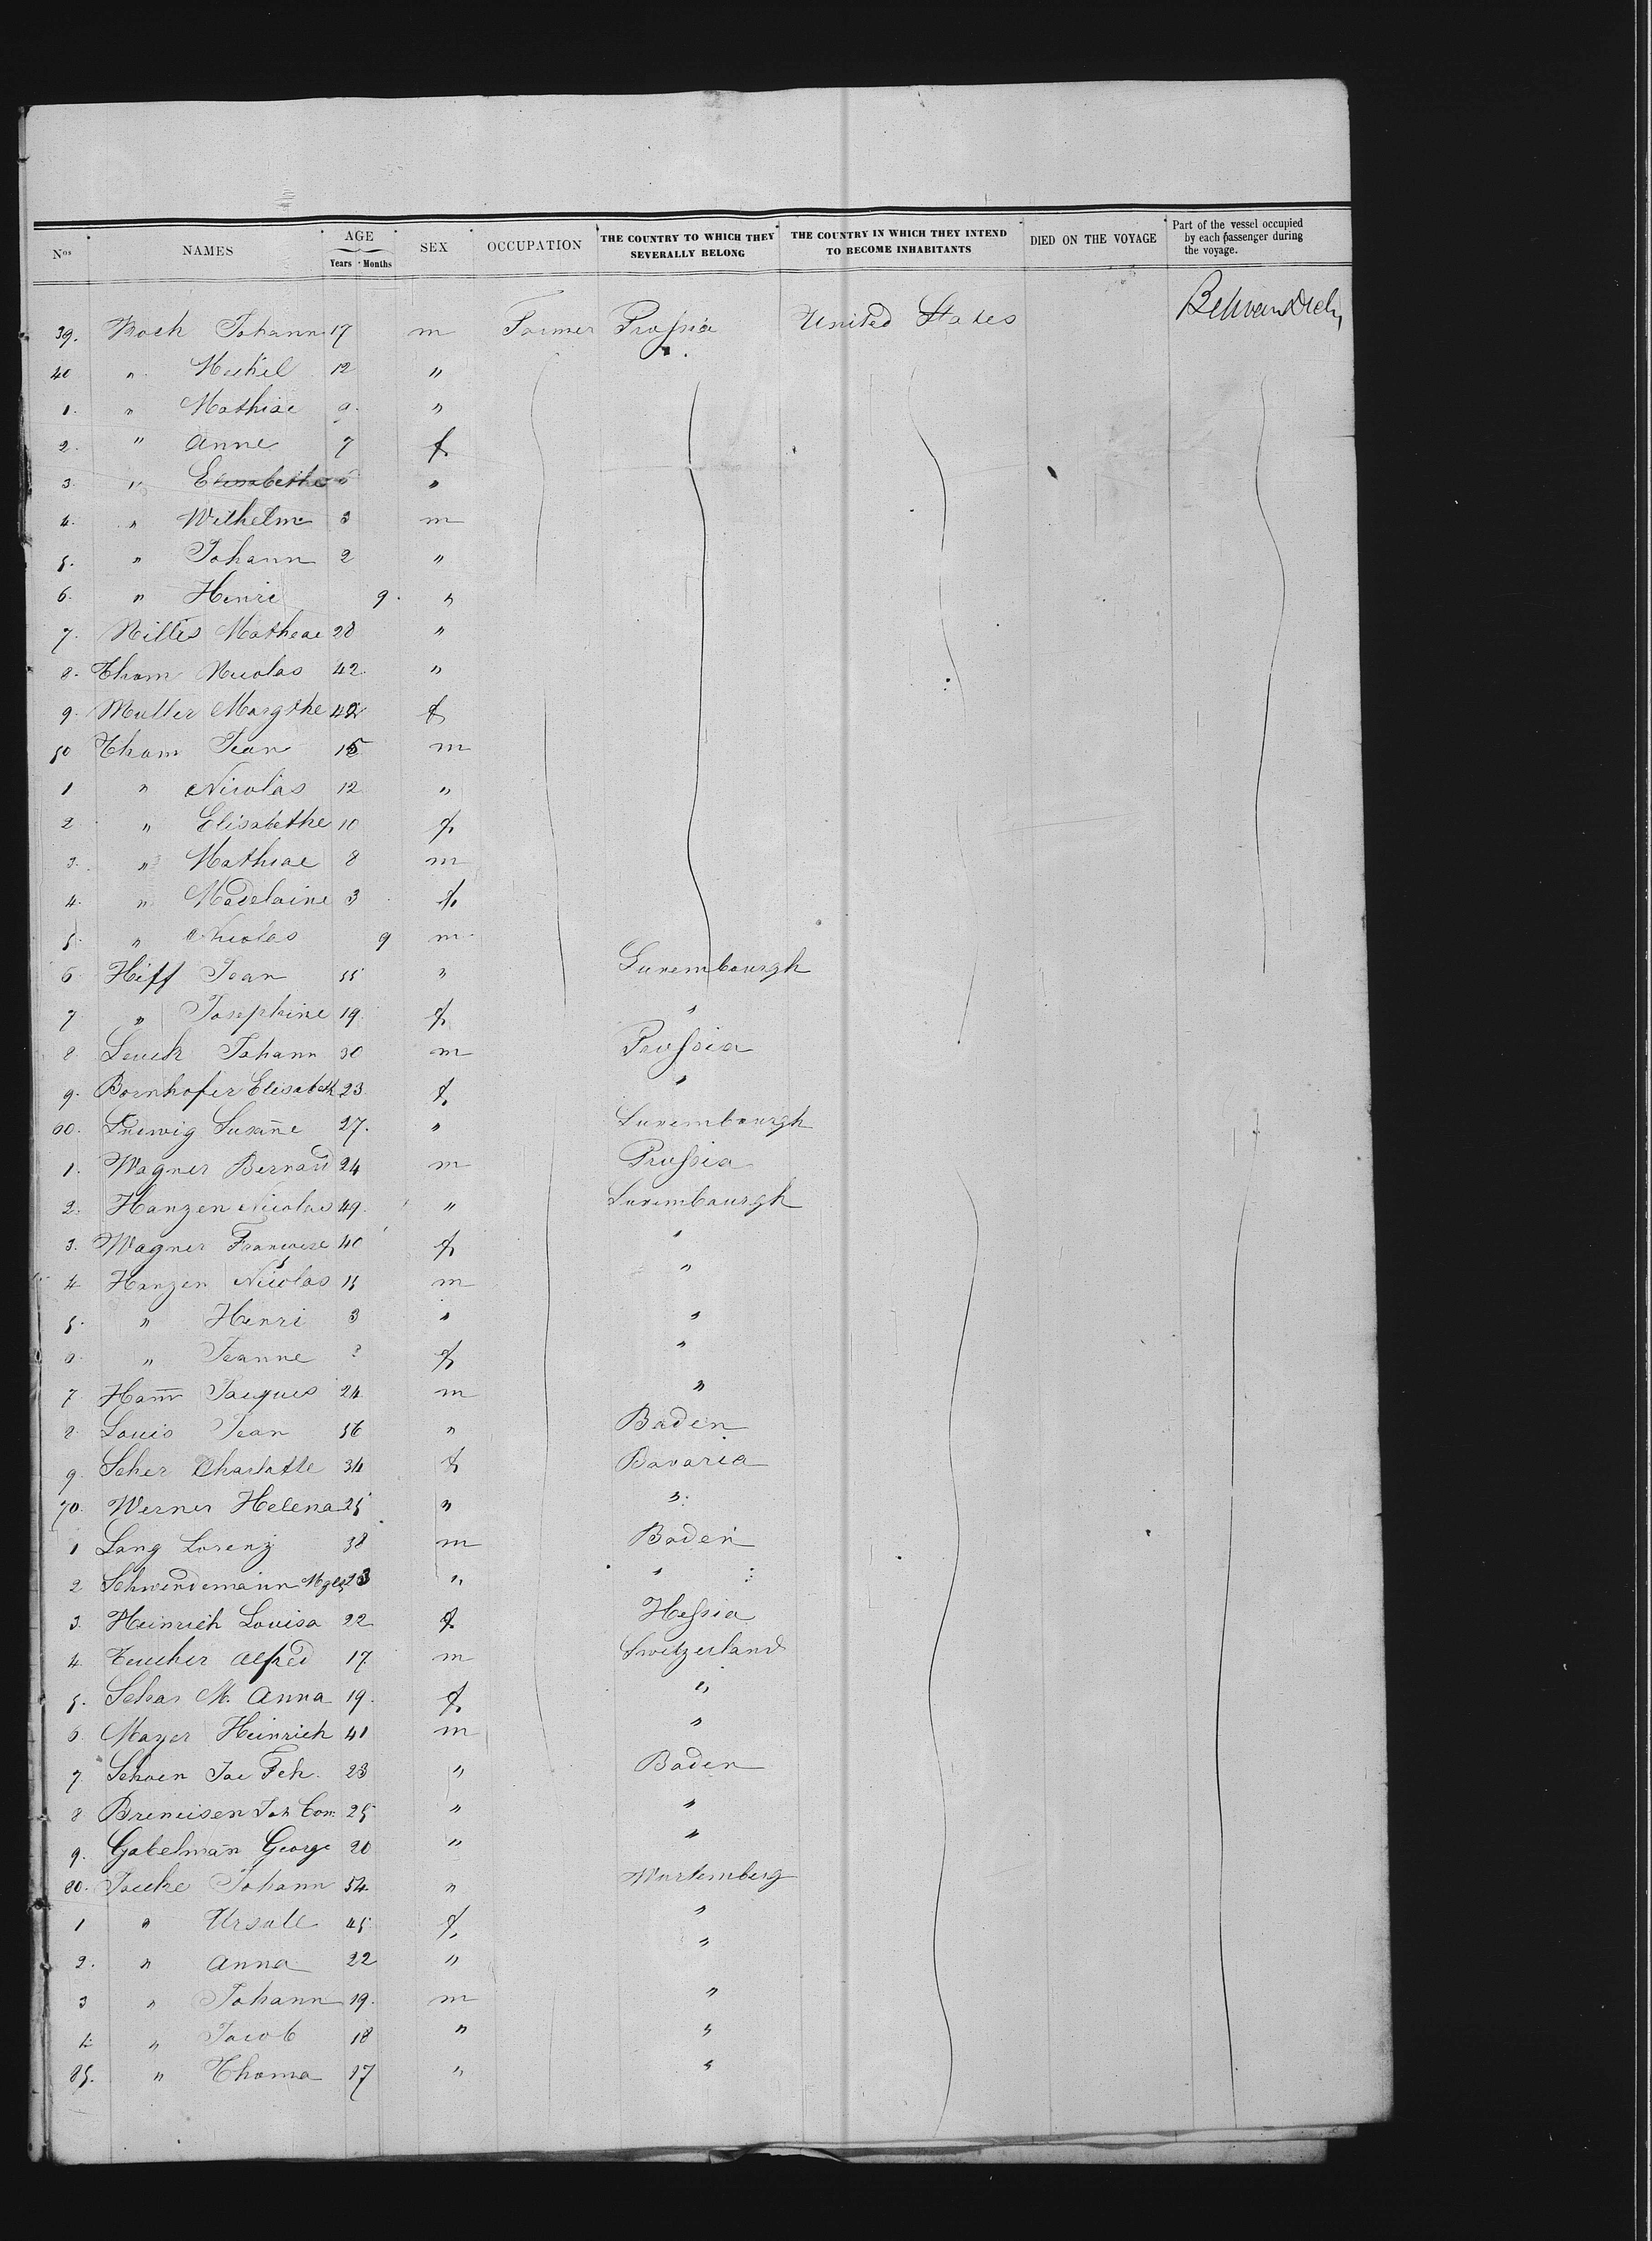 Nos NAMES AGE Years Months SEX OCCUPATION THE COUNTRY TO WHICH THEY SEVERALLY BELONG THE COUNTRY IN WHICH THEY INTEND TO BECOME INHABITANTS DIED ON THE VOYAGE Part of the vessel occupied by each passenger during the voyage.
39. Johann 17 m Farmer Prussia United States
40 " Michel 12 "
1. " Mathiae 9. "
2. " Anne 7 f
3. " Elisabethe "
4. " Wilhelm 3 m
5. " Johann 2 "
6. " Henri 9. "
7. Nilles Matheae 28 "
8. Tham Nicolas 42. "
9. Muller Margthe 42 f
50 Tham Jean 15 m
1 " Nicolas 12 "
2 " Elisabethe 10 f
3. " Mathiae 8 m
4. " Madelaine 3 f
5. " Nicolas 9 m
6. Hiff Jean 55 " Luxembourgh
7 " Josephine 19 f "
8 Leuck Johann 30 m Prussia
9. Bornhofer Elisabeth 23 f "
60. Ludwig Susanne 27. " Luxembourgh
1. Wagner Bernard 24 m Prussia
2. Hanzen Nicolas 49. " Luxembourgh
3. Wagner Francoise 40 f "
4 Hanzen Nicolas 15 m "
5. " Henri 3 " "
6. " Jeanne f "
7. Hamm Jacques 24 m "
8 Louis Jean 56 " Baden
9 Scher Charlotte 34 f Bavaria
70. Werner Helena 25 " "
1 Lang Lorenz 38 m Baden
2 Schwendemann 23 " "
3. Heinrich Louisa 22 f Hessia
4. Alfred 17. m Switzerland
5. Schar M. Anna 19. f "
6. Mayer Heinrich 41 m "
7. Schoen Jac Fch. 23 " Baden
8 Breneisen Joh Con. 25 " "
9. Gabelmann George 20 " "
80. Jaucke Johann 54 " Wurtemberg
1 " Ursule 45 f "
2. " Anna 22 " "
3 " Johann 19. m "
4. " Jacob 18 " "
85. " Thoma 17 " "